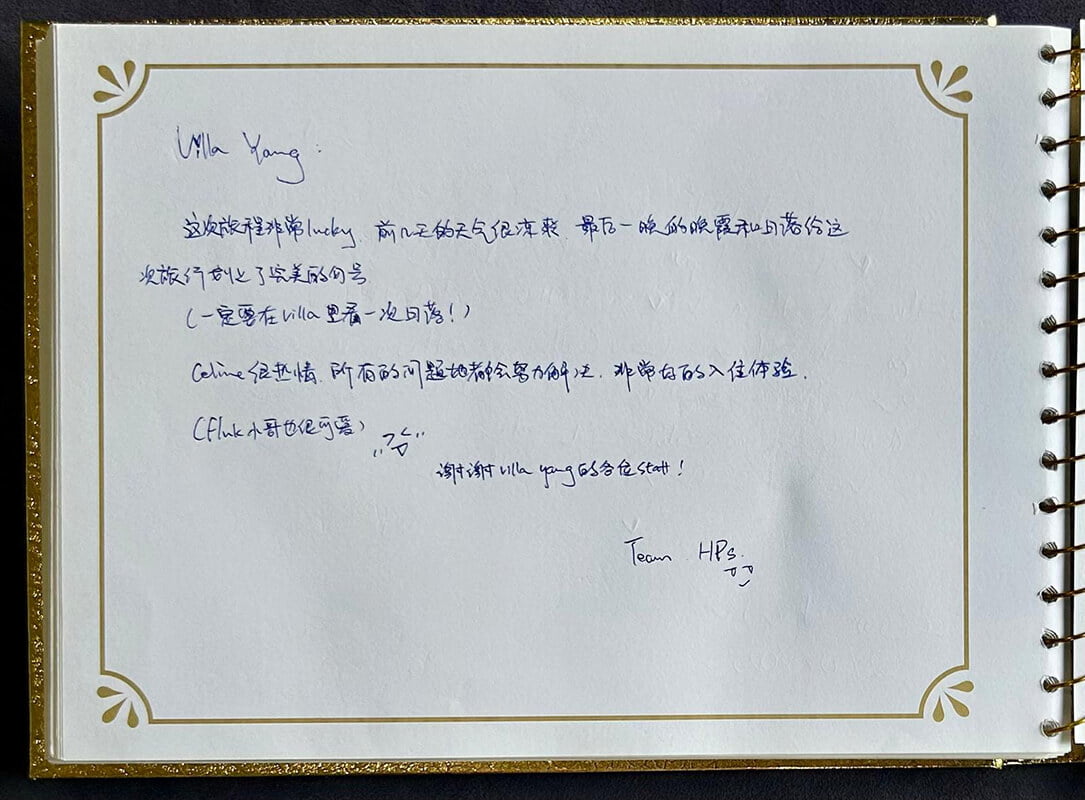 Villa Yang:
这次旅程非常lucky, 前几天的天气很凉爽, 最后一晚的晚霞和日落给这
次旅行划上了完美的句号
(一定要在villa里看一次日落!)
Celine很热情, 所有的问题她都会努力解决, 非常好的入住体验.
(Fluk小哥也很可爱)
谢谢villa yang的各位staff!
Team HPs.